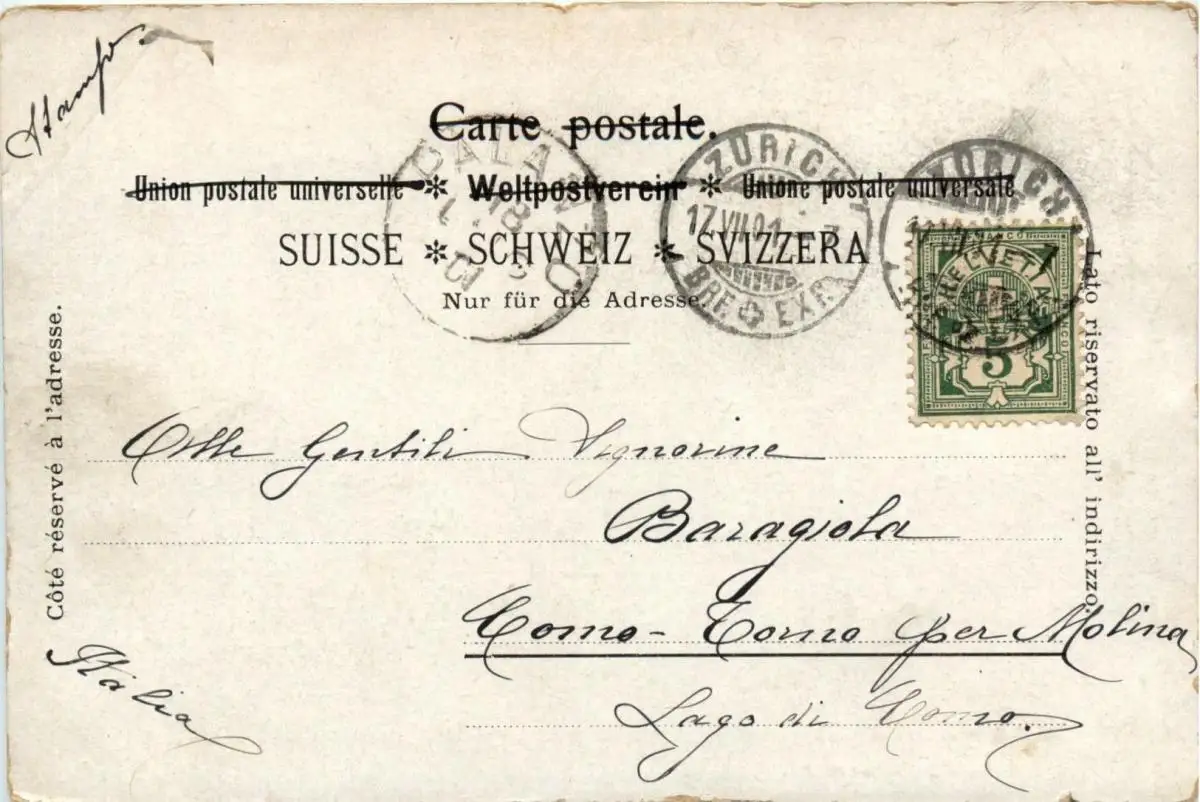 Stampe
Carte postale.
Union postale universelle * Weltpostverein * Unione postale universale
SUISSE * SCHWEIZ * SVIZZERA
Nur für die Adresse.
ZÜRICH
17.VII.01
BRF. EXP.
ZÜRICH
HELVETIA
FRANCO
5
Côté réservé à l'adresse.
Lato riservato all' indirizzo.
Alle Gentili Signorine
Baragiola
Como - Torno per Molina
Lago di Como.
Italia